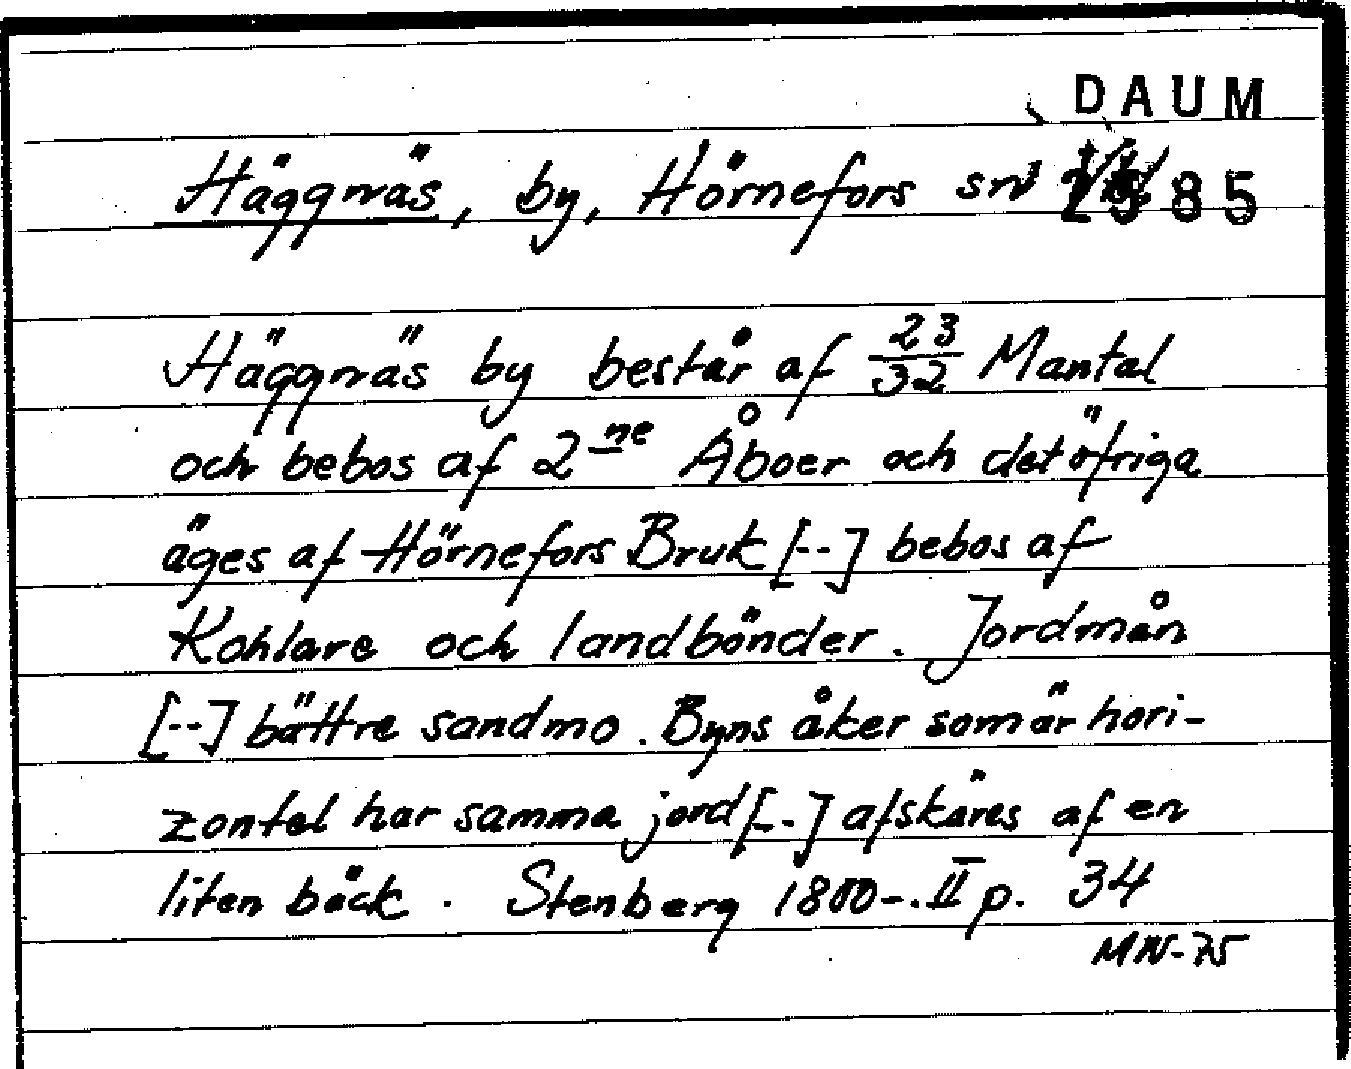 DAUM
Häggnäs, by, Hörnefors sn 85
Häggnäs by består af 23/32 Mantal
och bebos af 2ne Åboer och det öfriga
äges af Hörnefors Bruk [--] bebos af
Kohlare och landbönder. Jordmån
[--] bättre sandmo. Byns åker som är hori-
zontel har samma jord [--] afskäres af en
liten bäck. Stenberg 1800-. II p. 34
MN-75